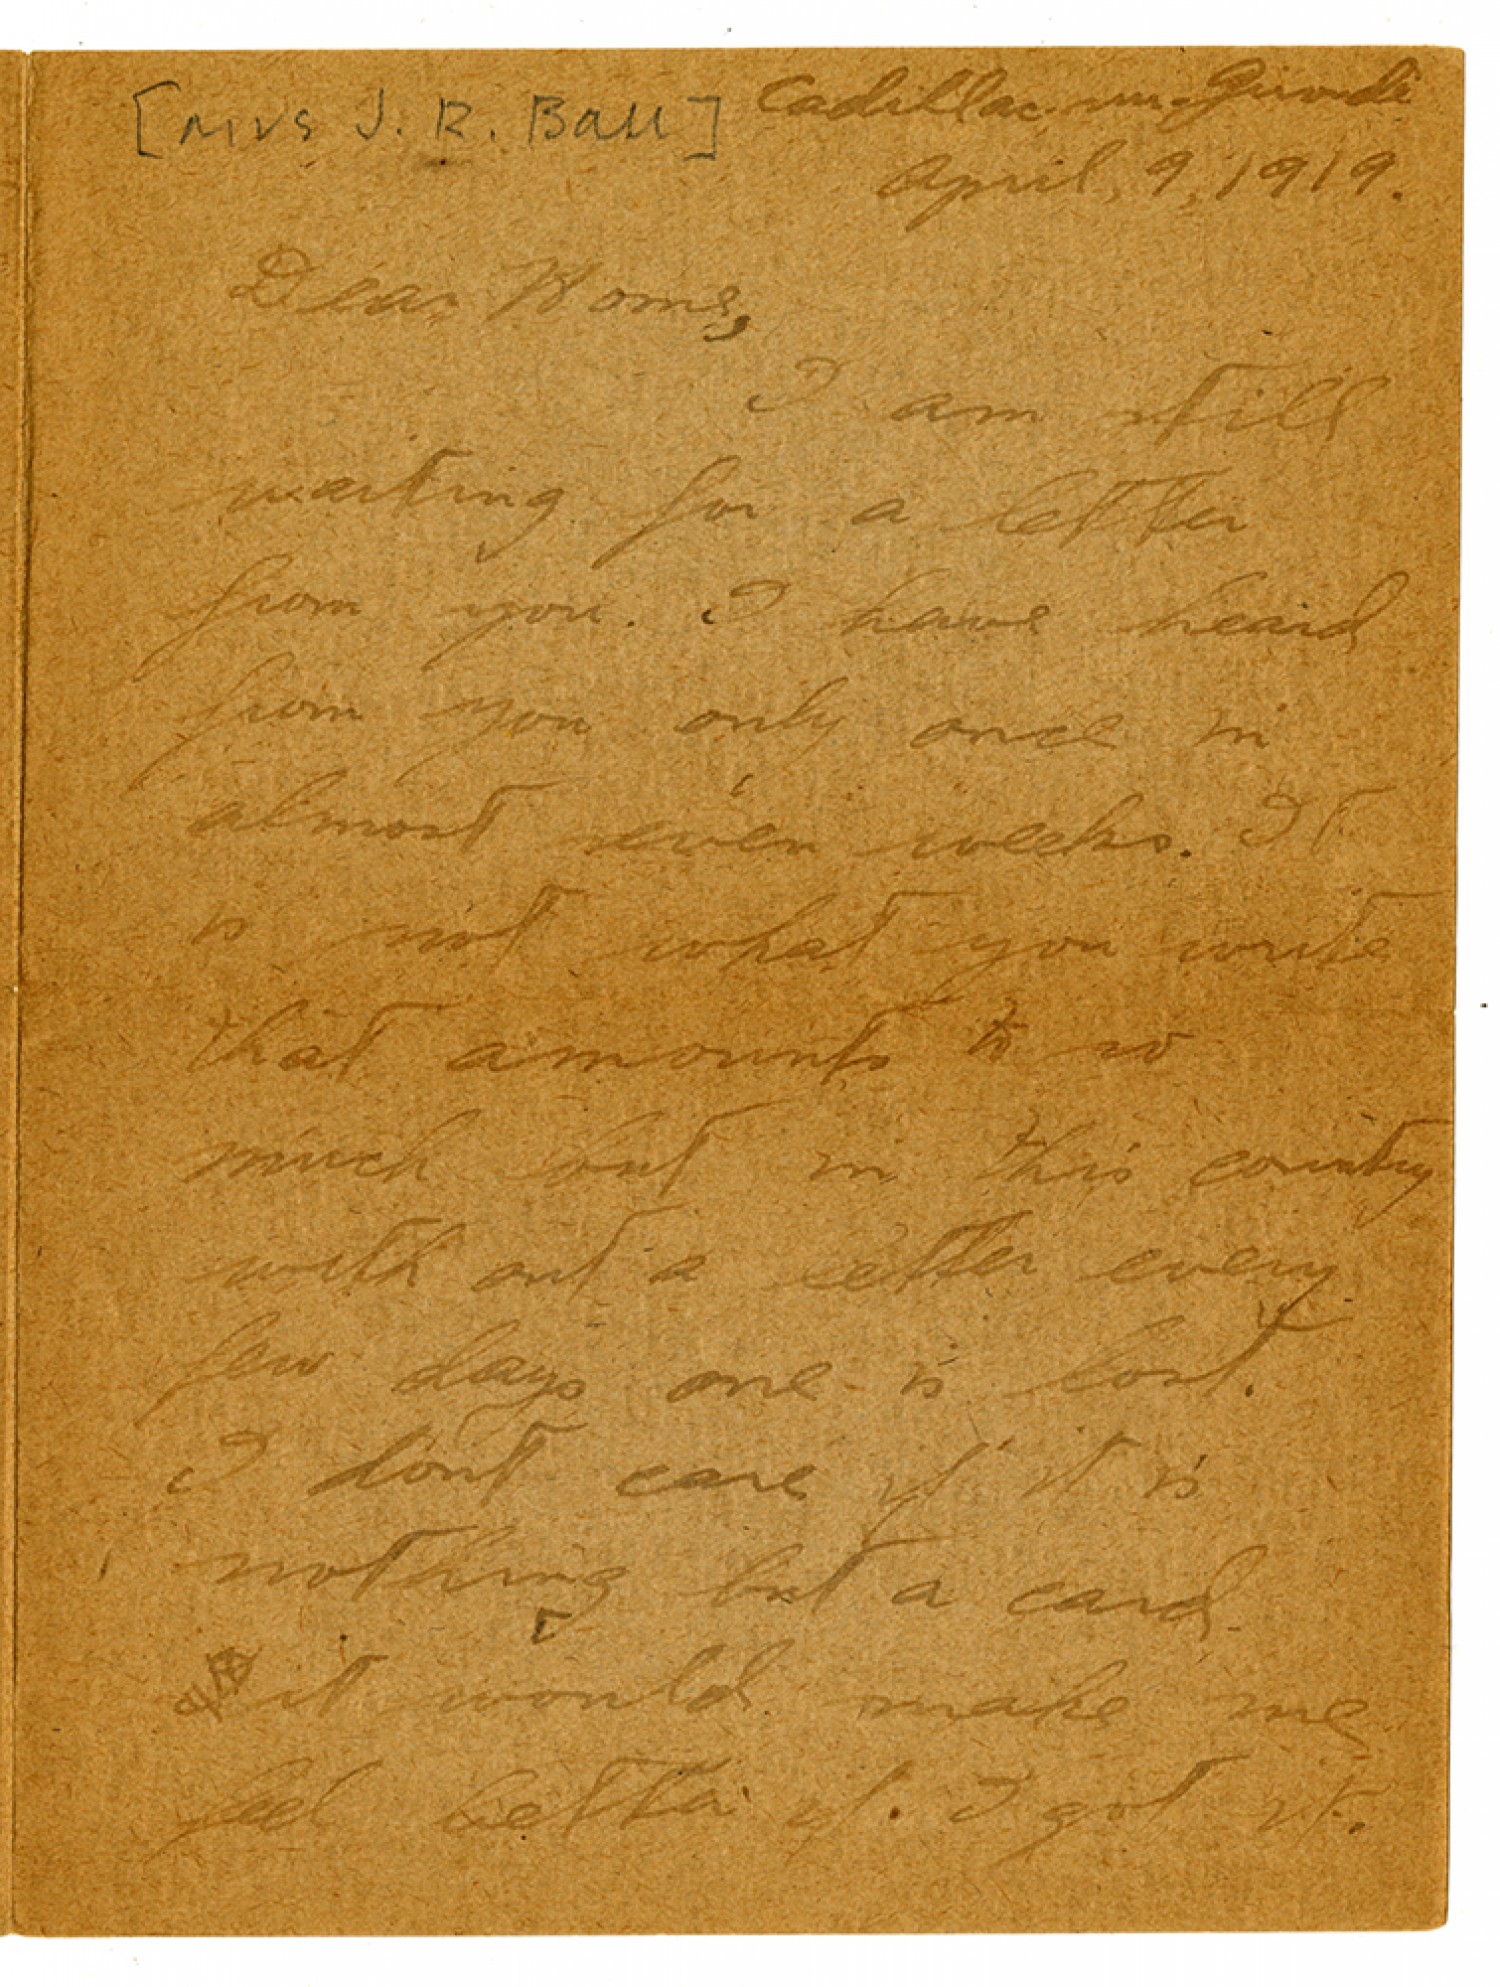 [Mrs J. R. Ball] Cadillac Gironde
April, 9, 1919.
Dear Home,
I am still
waiting for a letter
from you. I have heard
from you only once in
almost seven weeks. It
is not what you write
that amounts to so
much but in this country
with out a letter every
few days one is lost.
I dont care if it is
nothing but a card
it would make me
feel better if I got it.